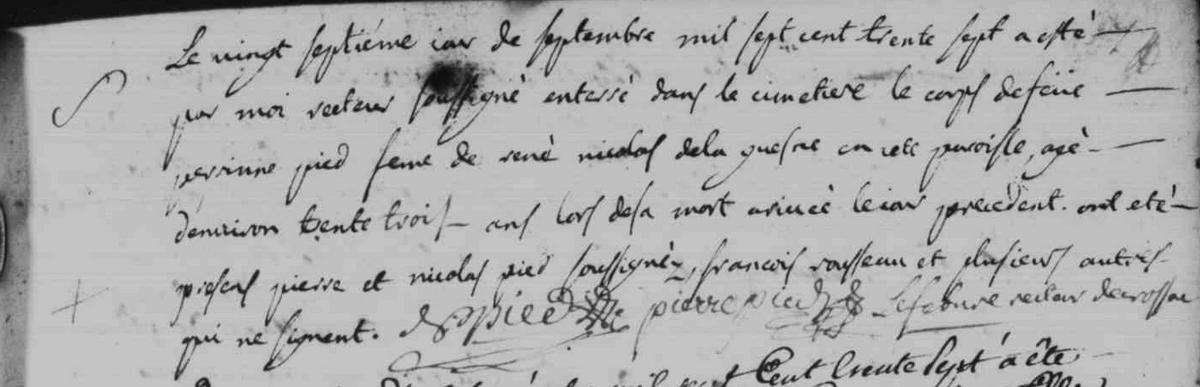 Le vingt septiéme iour de septembre mil sept cent trente sept a esté
par moi recteur soussigné enterré dans le cimetiere le corps defeüe
perrinne pied feme de rené nicolas dela guesne en cette paroisse, agé
d'environ trente trois ans lors desa mort arivée le iour précédent. ont eté
presens pierre et nicolas pied soussignéz, francois rousseau et plusieurs autres
qui ne signent. N pied pierre pied Lefebure recteur decrossac
cent trente sept a ête